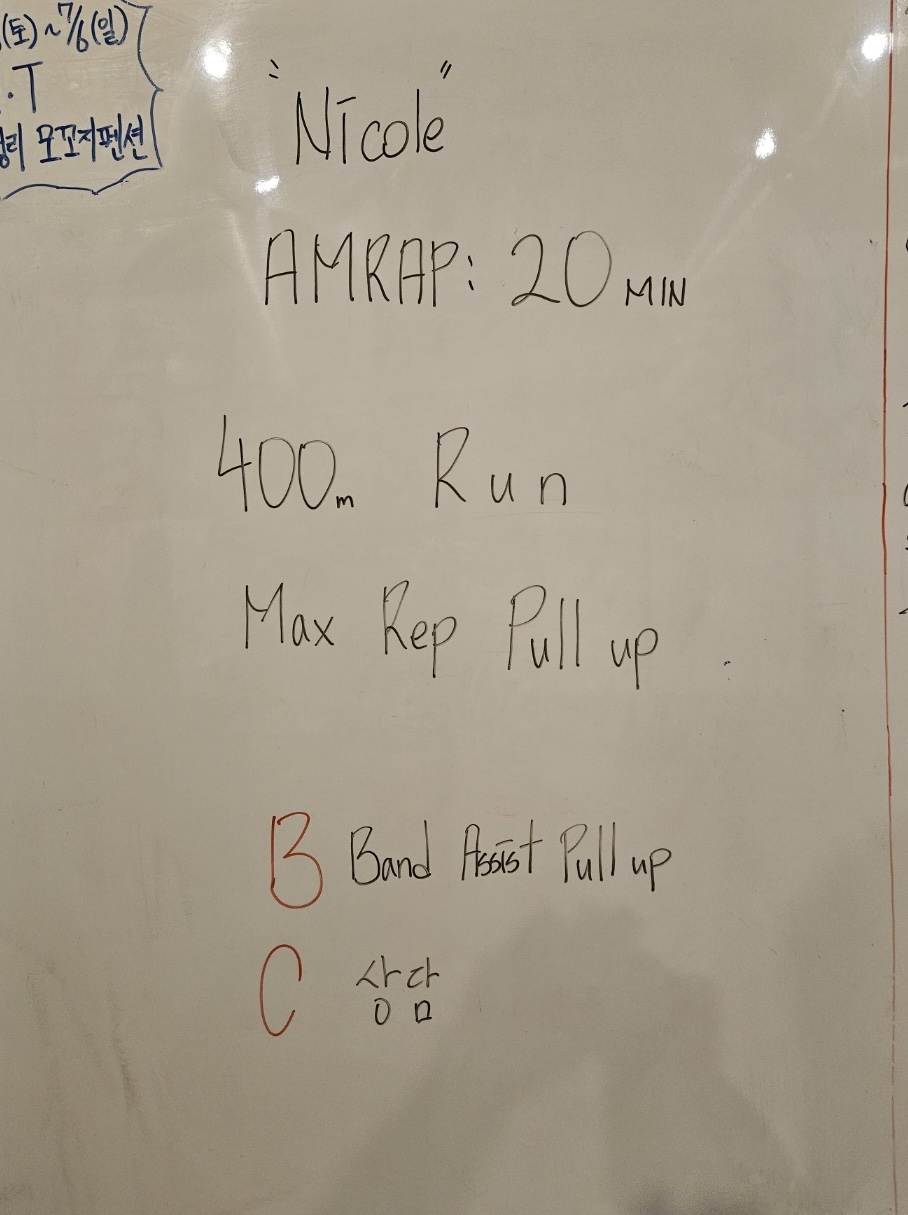 (토)~7/6(일)
.T
리 모꼬지펜션
"Nicole"
AMRAP: 20 MIN
400m Run
Max Rep Pull up
B Band Assist Pull up
C 상담